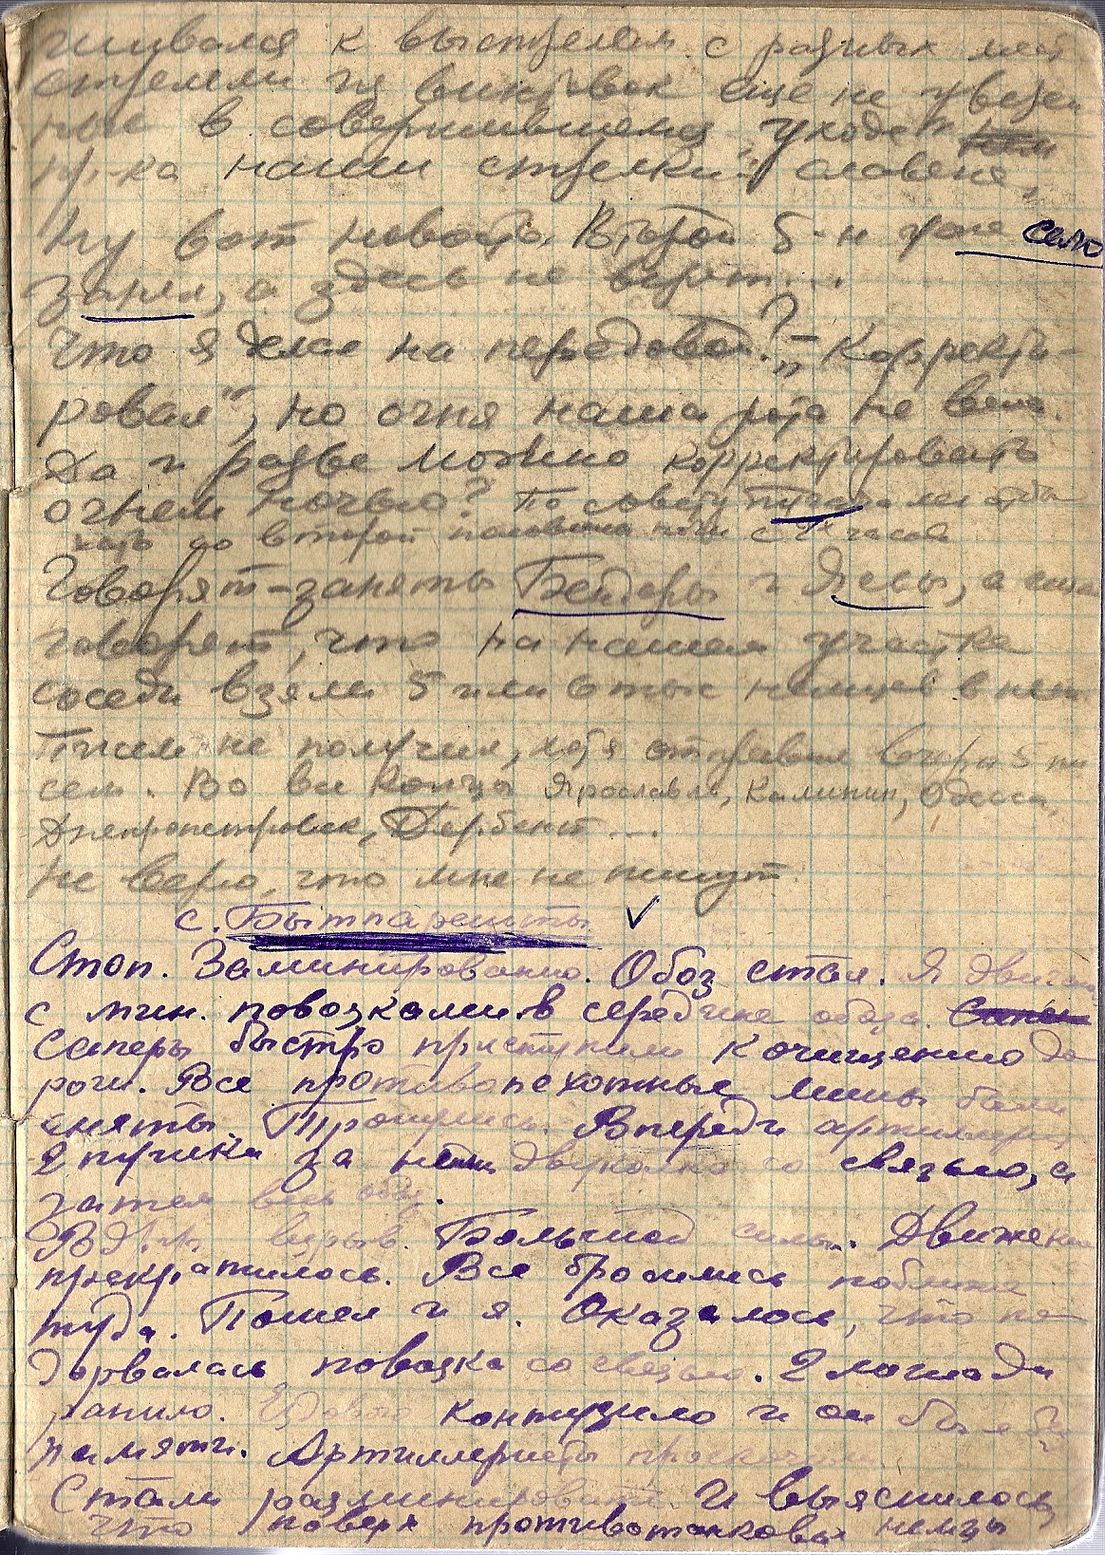 шивался к выстрелам с разных мест
стреляли из винтовок еще не уверен
ные в совершившемся уходе
пр-ка наши стрелки славяне,
Ну вот новость. Второй б-н уже село
занял, а здесь не верят...
Что я делал на передовой? – „Корректи-
ровал", но огня наша рота не вела.
Да и разве можно корректировать
огнем ночью? По совету
до второй половины ночи с часов
Говорят – заняты Бендеры и Яссы, а еще
говорят, что на нашем участке
соседи взяли 5 или 6 тыс немцев в плен
Писем не получил, хотя отправил вчера 5 пи
сем. Во все концы Ярославль, Калинин, Одесса,
Днепропетровск, Дербент...
Не верю, что мне не пишут.
с.
Стоп. Заминировано. Обоз стал. Я двигал
с мин. повозками в середине обоза. Сапе
Саперы быстро приступили к очищению до
роги. Все противопехотные мины были
сняты. Тронулись. Впереди артиллерия
2 пушки за ними двуколка со связью, а
затем весь обоз.
Вдруг взрыв. Большой силы. Движение
прекратилось. Все бросились поближе
туда. Пошел и я. Оказалось, что по
дорвалась повозка со связью. 2 лошади
ранило. Ездового контузило и он был без
памяти. Артиллеристы проскочили.
Стали разминировать. И выяснилось,
что поверх противотанковых немцы